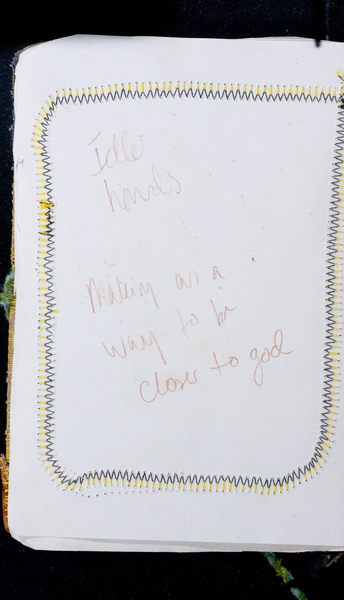 Idle
hands
Making as a
way to be
closer to god